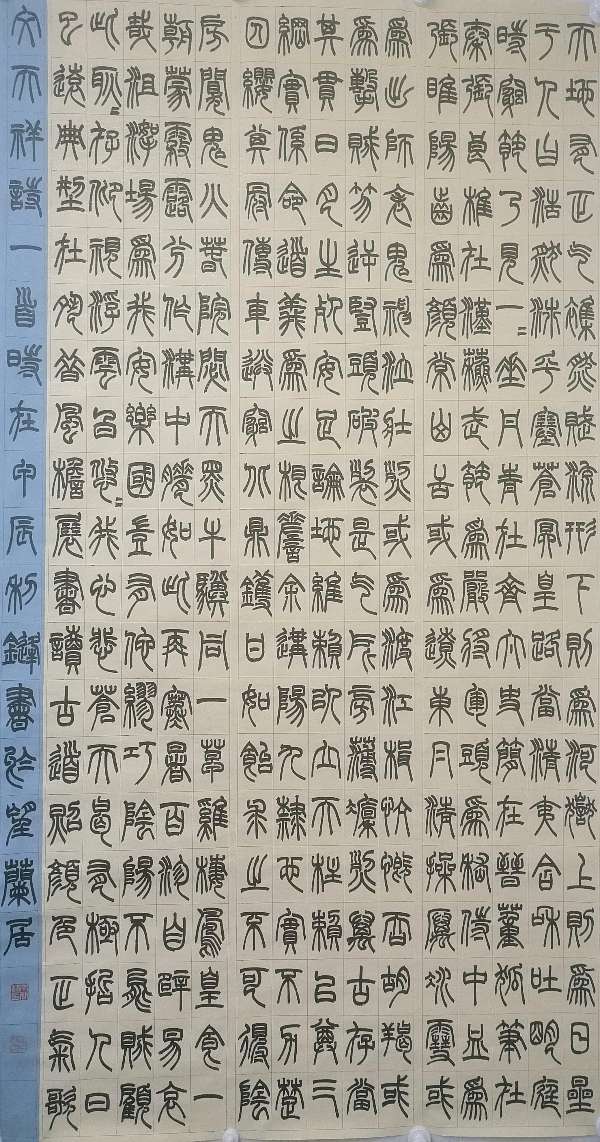 天地有正气雜然賦流形下則爲河嶽上則爲日星
于人曰浩然沛乎塞蒼冥皇路當清夷含和吐明庭
時窮節乃見一=垂丹青在齊太史簡在晉董狐筆在
秦張良椎在漢蘇武節爲嚴將軍頭爲嵇侍中血爲
張睢陽齒爲顏常山舌或爲遼東帽清操厲冰雪或
爲出師表鬼神泣壯烈或爲渡江楫慷慨吞胡羯或
爲擊賊笏逆豎頭破裂是气所磅礴凜烈萬古存當
其貫日月生死安足論地維賴以立天柱賴以尊三
綱實係命道義爲之根嗟余遘陽九隸也實不力楚
囚纓其冠傳車送窮北鼎鑊甘如飴求之不可得陰
房闃鬼火春院閟天黑牛驥同一皂雞棲鳳皇食一
朝蒙霧露分作溝中瘠如此再寒暑百沴自辟易哀
哉沮洳場爲我安樂國豈有佗繆巧陰陽不能賊顧
此耿=存仰視浮雲白悠=我心悲蒼天曷有極哲人日
已遠典型在夙昔風檐展書讀古道照顏色正氣歌
文天祥詩一首時在甲辰利鋒書於望蘭居